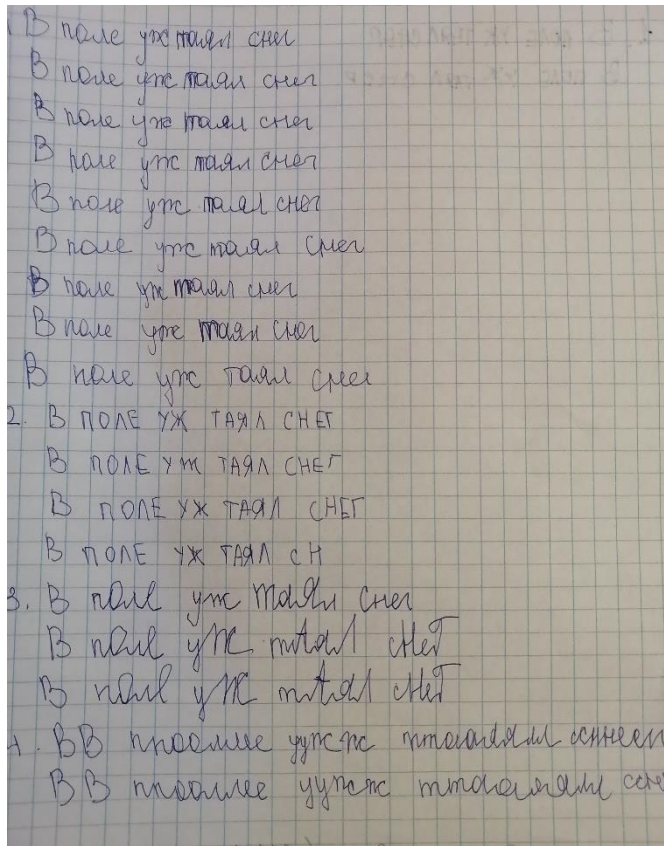 1 В поле уж таял снег
В поле уж таял снег
В поле уж таял снег
В поле уж таял снег
В поле уж таял снег
В поле уж таял снег
В поле уж таял снег
В поле уж таял снег
В поле уж таял снег
2. В ПОЛЕ УЖ ТАЯЛ СНЕГ
В ПОЛЕ УЖ ТАЯЛ СНЕГ
В ПОЛЕ УЖ ТАЯЛ СНЕГ
В ПОЛЕ УЖ ТАЯЛ СН
3. В пОлЕ уж ТаЯл Снег
В пОлЕ уЖ тАял сНеГ
В пОлЕ уЖ тАял сНеГ
4. ВВ ппооллее уужж ттааяялл сннеег
ВВ ппооллее уужж ттааяялл ссне